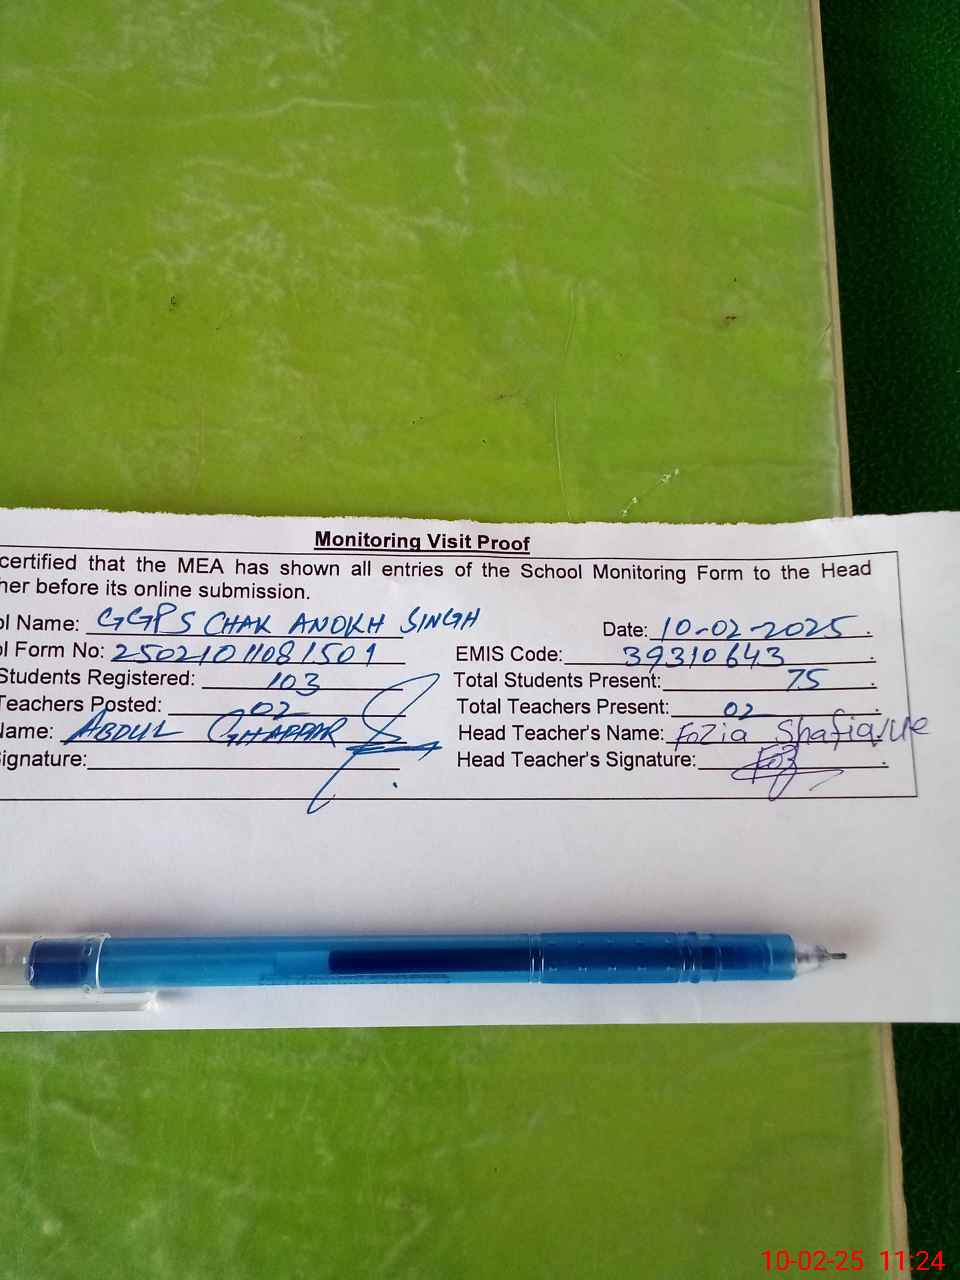 Monitoring Visit Proof
certified that the MEA has shown all entries of the School Monitoring Form to the Head
her before its online submission.
ol Name: GGPS CHAK ANOKH SINGH Date: 10-02-2025
ol Form No: 2502101081501 EMIS Code: 39310643
Students Registered: 103 Total Students Present: 75
Teachers Posted: 02 Total Teachers Present: 02
Name: ABDUL GHAFFAR Head Teacher's Name: Fozia Shafique
ignature: Head Teacher's Signature: Foz
10-02-25 11:24